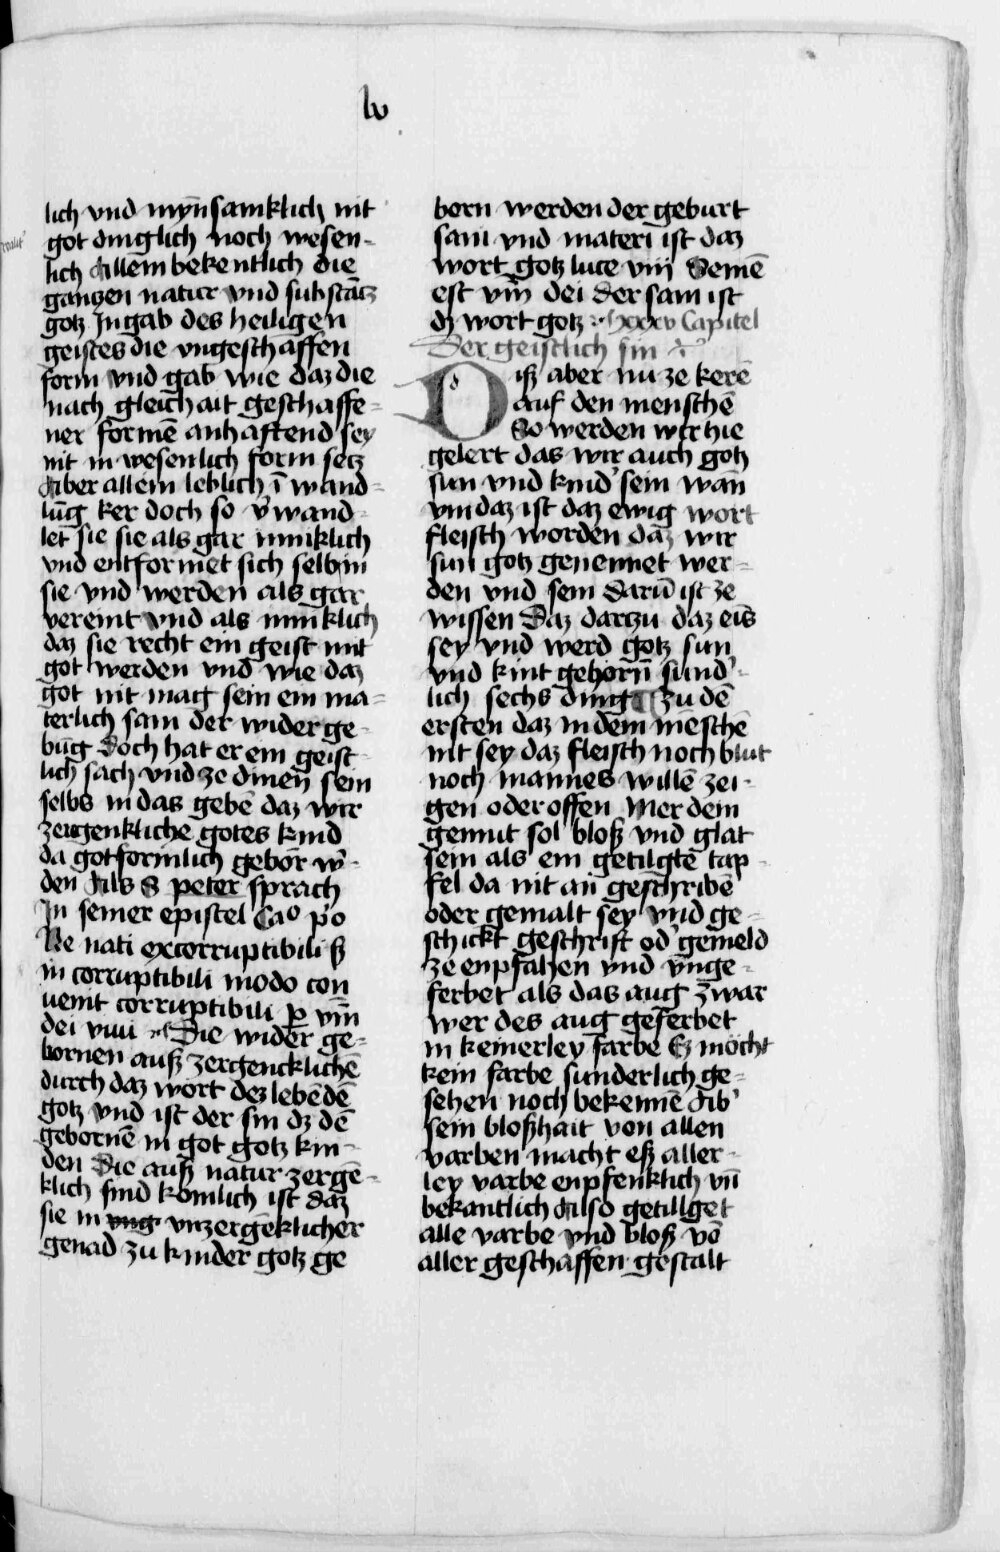 lv
lich vnd mÿnsamklich nit
got dinglich noch wesen-
lich Allem bekentlich die
gantzen natur vnd substātz
gotz Ingab des heiligen
geistes die vngeschaffen
form vnd gab wie daz die
nach gleichait geschaffe-
ner formē anhaftend sey
nit in wesenlich form setz
Aber allein leblich ī wand-
lūg ker doch so v'wand-
let sie sie als gar inniklich
vnd entformet sich selb in
sie vnd werden als gar
vereint vnd als inniklich
daz sie recht ein geist mit
got werden vnd wie daz
got nit mag sein ein ma-
terlich sam der widerge-
būg doch hat er ein geist-
lich sach vnd ze dinen sein
selbs in das gebē daz wir
zergenkliche gotes kind
da gotformlich geborn w'-
den Als S peter sprach
In seiner epistel Cao po
Re nati ex corruptibili ß
in corruptibili modo con
uenit corruptibili p vm̄
dei viui Die widerge-
bornen auß zergencklichē
durch daz wort dez lebēdē
gotz vnd ist der sin dz dē
gebornē in got gotz kin-
den Die auß natur zergē-
klich sind komlich ist daz
sie in vng vnzergēklicher
genad zu kinder gotz ge
born werden der geburt
sam vnd materi ist daz
wort gotz luce viij Semē
est vm̄ dei Der sam ist
dz wort gotz lxxxv Capitel
Der geistlich sin
Diß aber nu ze kerē
auf den menschē
So werden wir hie
gelert das wir auch gotz
sun vnd kind' sein wan̄
vm daz ist daz ewig wort
fleisch worden daz wir
sun gotz genennet wer-
den vnd sein Darū ist ze
wissen Daz darzu daz eīs
sey vnd werd gotz sun
vnd kint geborn̄ sund'-
lich sechs ding Zu dē
ersten daz in dem meschē
nit sey daz fleisch noch blut
noch mannes willē zei-
gen oder offen Mer dem
gemut sol bloß vnd glat
sein als ein getilgtē tap-
fel da nit an geschribē
oder gemalt sey vnd ge-
schickt geschrift od' gemeld
ze enpfahen vnd vnge-
ferbet als das aug zwar
wer des aug geferbet
in keinerley farbe Ez möcht
kein farbe sunderlich ge-
sehen noch bekennē Ab'
sein bloßhait von allen
varben macht eß aller-
ley varbe enpfenklich vn̄
bekantlich Also getillget
alle varbe vnd bloß vō
aller geschaffen gestalt